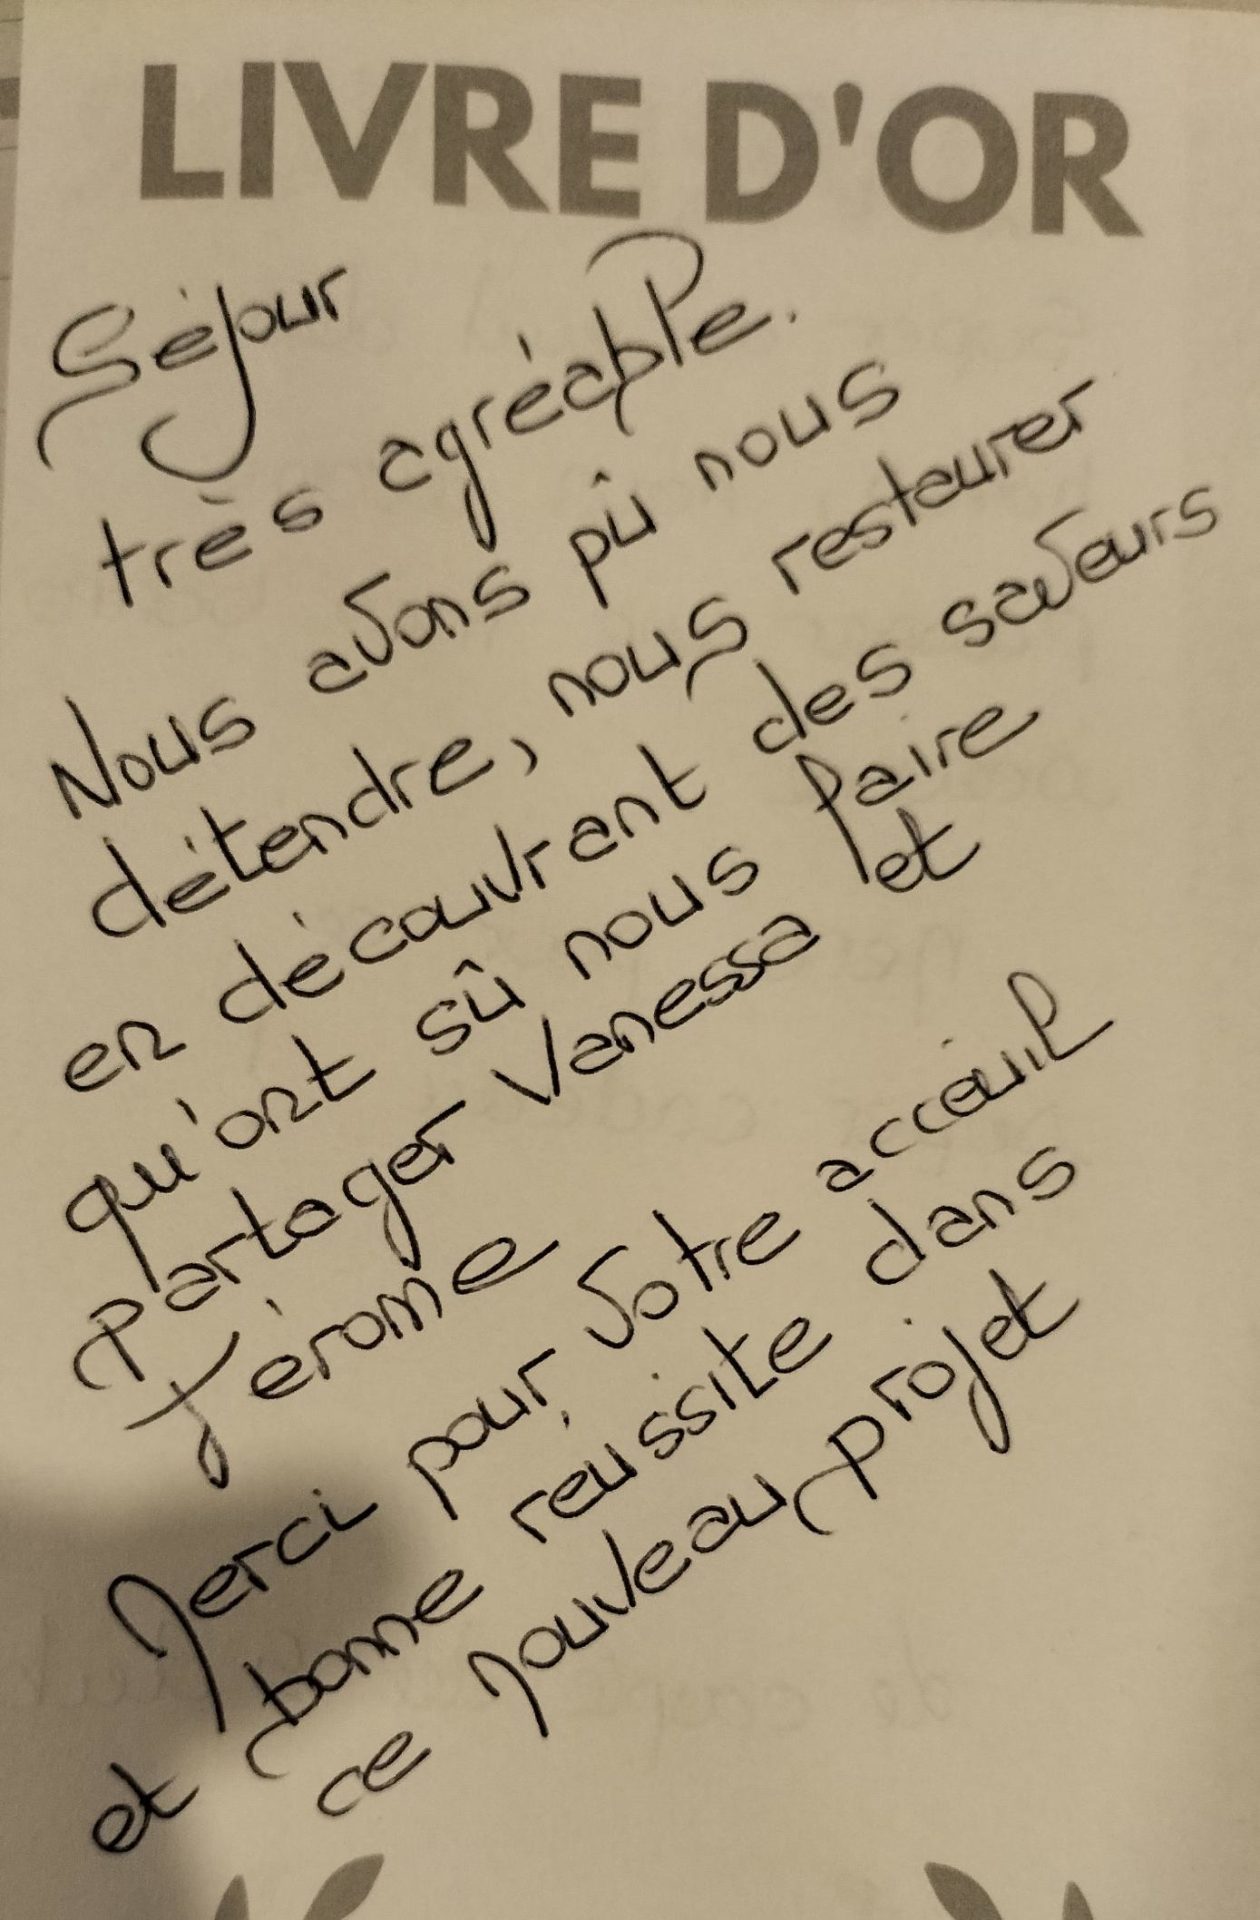 LIVRE D'OR
Séjour
très agréable.
Nous avons pû nous
détendre, nous restaurer
en découvrant des saveurs
qu'ont sû nous faire
partager Vanessa et
Jérome
Merci pour votre acceuil
et bonne réussite dans
ce nouveau projet